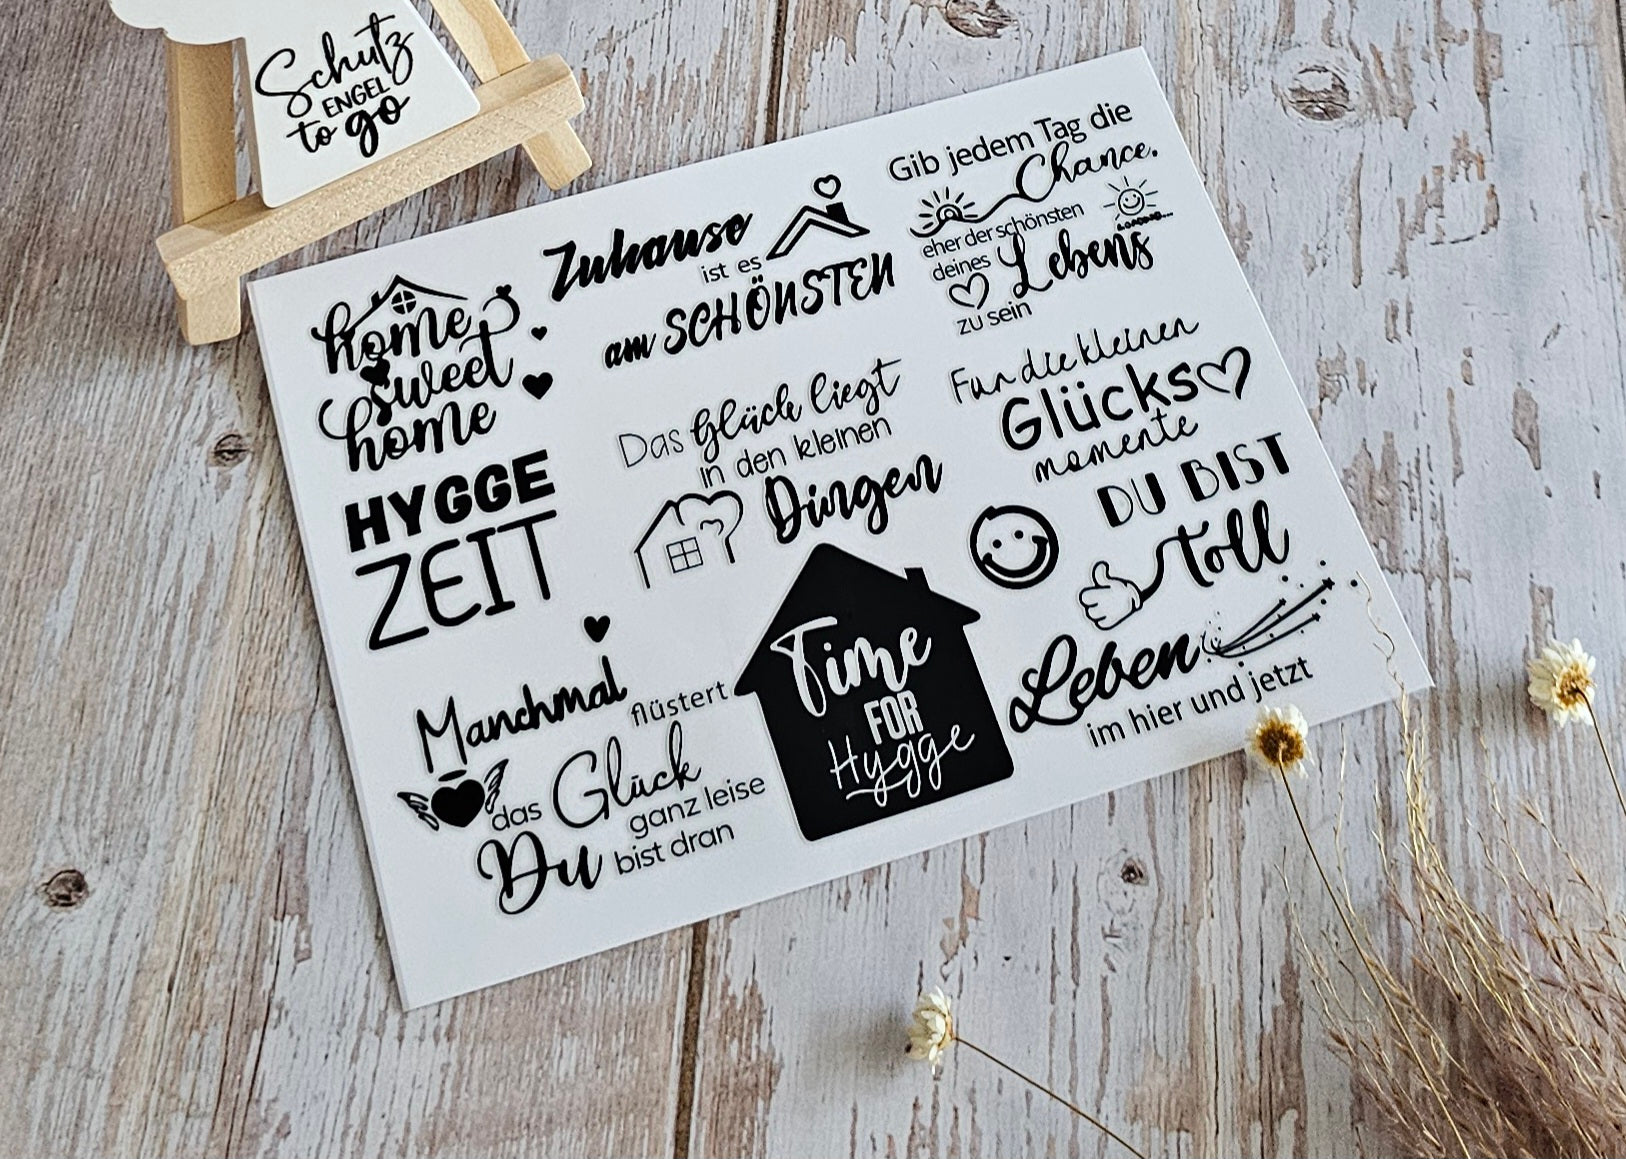 Schutz
ENGEL
to go
home
sweet
home
Zuhause
ist es
am SCHÖNSTEN
Gib jedem Tag die
Chance,
eher der schönsten
LOADING...
deines Lebens
zu sein
Das Glück liegt
in den kleinen
Dingen
Für die kleinen
Glücks
momente
HYGGE
ZEIT
DU BIST
toll
Manchmal
flüstert
das Glück
ganz leise
Du bist dran
Time
FOR
Hygge
Leben
im hier und jetzt